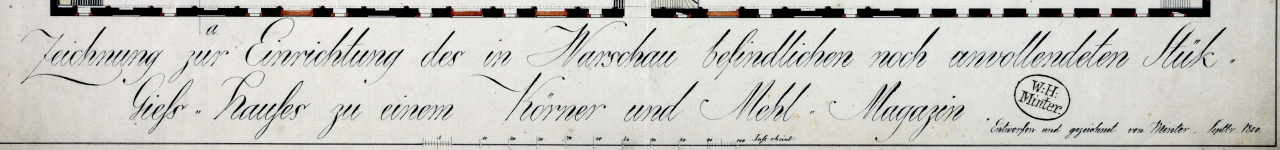 a.
Zeichnung zur Einrichtung des in Warschau befindlichen noch unvollendeten Stük-
Giess- Hauses zu einem Körner und Mehl- Magazin
W: H: Minter.
Entworfen und gezeichnet von Minter. Septbr. 1800.
Fuss rheinl: